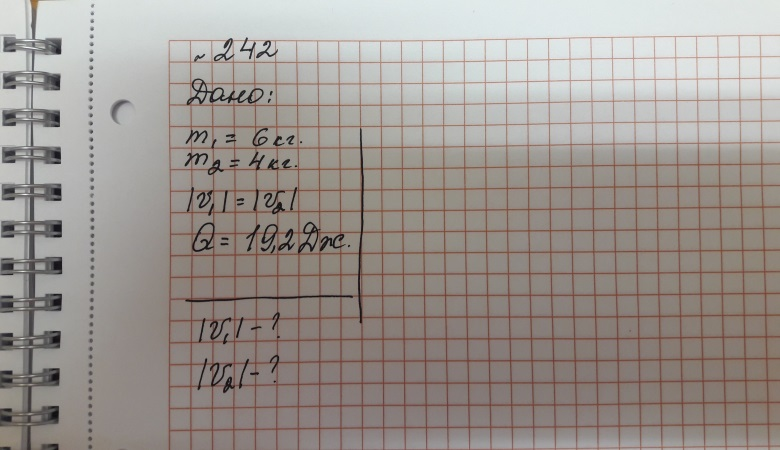 ~ 242
Дано:
m₁ = 6 кг.
m₂ = 4 кг.
|v₁| = |v₂|
Q = 19,2 Дж.
|v₁| - ?
|v₂| - ?